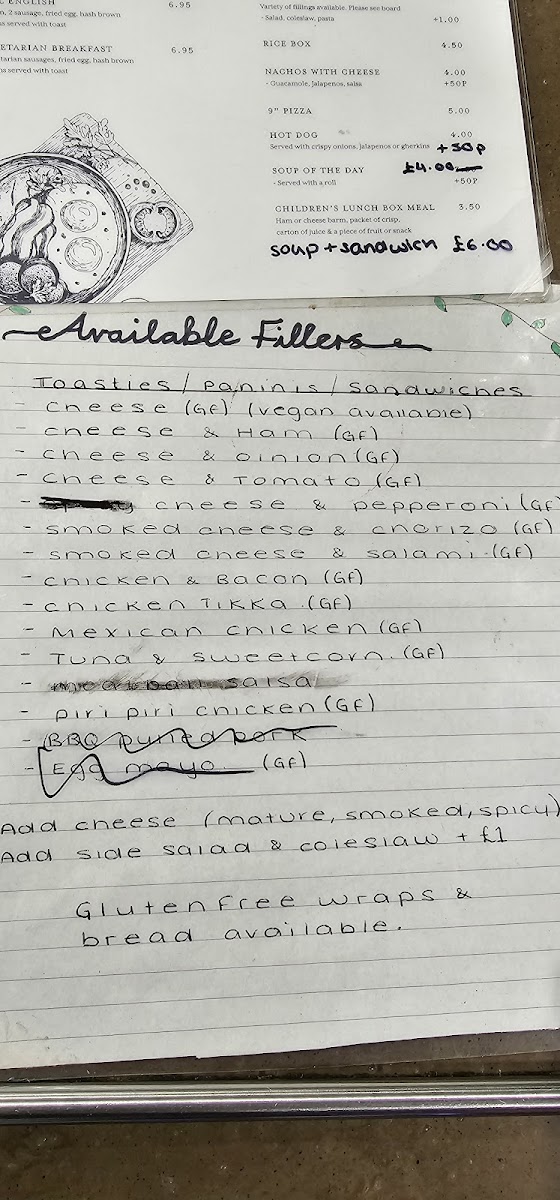 ENGLISH 6.95
n, 2 sausage, fried egg, hash brown
ns served with toast
ETARIAN BREAKFAST 6.95
tarian sausages, fried egg, hash brown
ns served with toast
Variety of fillings available. Please see board
- Salad, coleslaw, pasta +1.00
RICE BOX 4.50
NACHOS WITH CHEESE 4.00
- Guacamole, jalapenos, salsa +50P
9" PIZZA 5.00
HOT DOG 4.00
Served with crispy onions, jalapenos or gherkins +50p
SOUP OF THE DAY £4.00
- Served with a roll +50P
CHILDREN'S LUNCH BOX MEAL 3.50
Ham or cheese barm, packet of crisp,
carton of juice & a piece of fruit or snack
soup + sandwich £6.00
Available Fillers
Toasties / paninis / sandwiches
- cheese (GF) (vegan available)
- cheese & Ham (GF)
- cheese & oinion (GF)
- cheese & Tomato (GF)
- cheese & pepperoni (GF
- smoked cheese & chorizo (GF)
- smoked cheese & salami (GF)
- chicken & Bacon (GF)
- chicken TIKKA (GF)
- Mexican chicken (GF)
- Tuna & sweetcorn (GF)
- salsa
- piri piri chicken (GF)
- BBQ pulled pork
- Egg mayo (GF)
Add cheese (mature, smoked, spicy)
Add side salad & coleslaw + £1
Gluten Free wraps &
bread available.